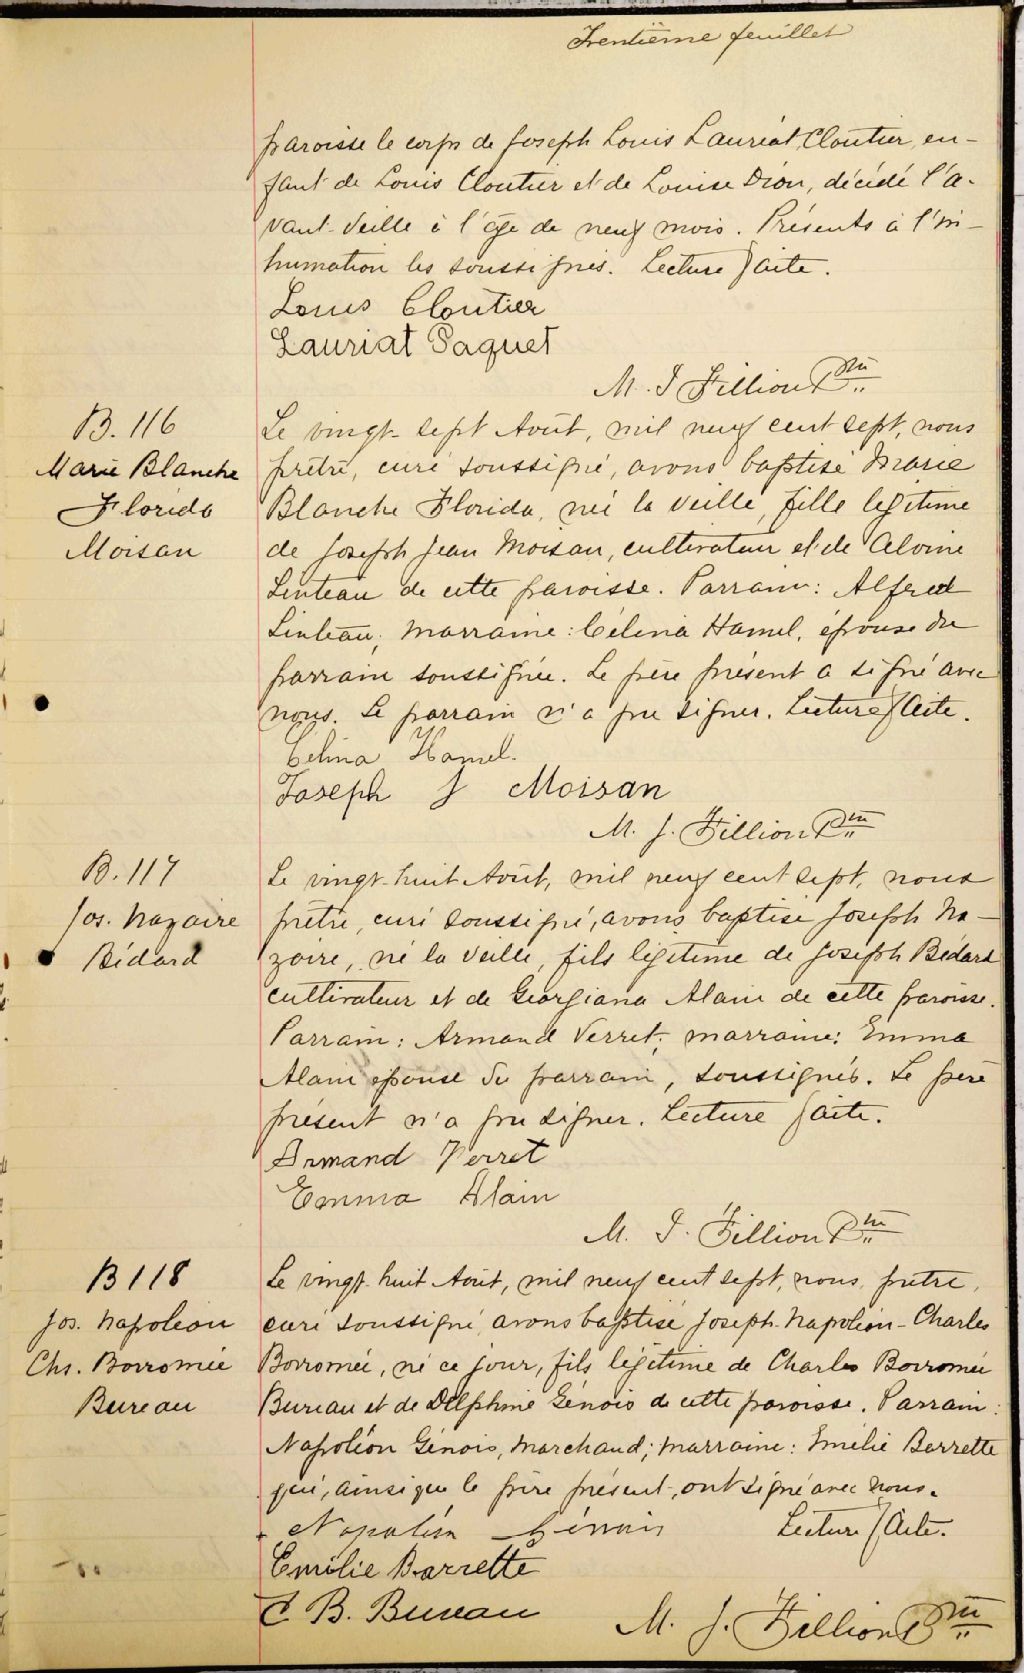 Trentième feuillet
paroisse le corps de Joseph Louis Lauréat Cloutier, en-
fant de Louis Cloutier et de Louise Dion, décédé l'a-
vant-veille à l'âge de neuf mois. Présents à l'in-
humation les soussignés. Lecture faite.
Louis Cloutier
Lauriat Paquet
M. J. Fillion Ptre
B. 116
Marie Blanche
Florida
Moisan
Le vingt-sept Août, mil neuf cent sept, nous
prêtre, curé soussigné, avons baptisé Marie
Blanche Florida, née la veille, fille légitime
de Joseph Jean Moisan, cultivateur et de Alvine
Linteau de cette paroisse. Parrain: Alfred
Linteau; marraine: Célina Hamel, épouse du
parrain soussignée. Le père présent a signé avec
nous. Le parrain n'a pu signer. Lecture faite.
Celina Hamel.
Joseph J Moisan
M. J. Fillion Ptre
B. 117
Jos. Nazaire
Bédard
Le vingt-huit Août, mil neuf cent sept, nous
prêtre, curé soussigné, avons baptisé Joseph Na-
zaire, né la veille, fils légitime de Joseph Bédard
cultivateur et de Georgiana Alain de cette paroisse.
Parrain: Armand Verret; marraine: Emma
Alain épouse du parrain, soussignés. Le père
présent n'a pu signer. Lecture faite.
Armand Verret
Emma Alain
M. J. Fillion Ptre
B 118
Jos. Napoléon
Chs. Borromée
Bureau
Le vingt-huit Août, mil neuf cent sept, nous, prêtre,
curé soussigné, avons baptisé Joseph-Napoléon-Charles
Borromée, né ce jour, fils légitime de Charles Borromée
Bureau et de Delphine Génois de cette paroisse. Parrain:
Napoléon Génois, marchand; marraine: Emélie Barrette
qui, ainsi que le père présent, ont signé avec nous.
Napoléon Génois Lecture faite.
Emilie Barrette
C. B. Bureau
M. J. Fillion Ptre